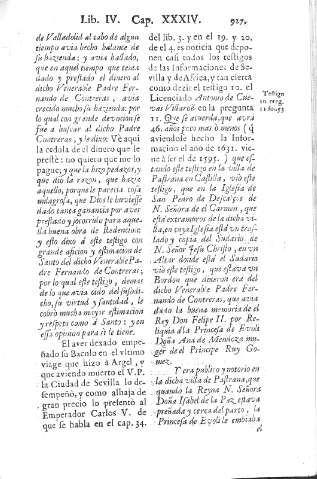 Lib. IV. Cap. XXXIV. 927.
de Valladolid al cabo de algun
tiempo avia hecho balance de
su hazienda: y avia hallado,
que en aquel tiempo que tenia
dado y prestado el dinero al
dicho Venerable Padre Fer-
nando de Contreras, avia
crecido mucho su hazienda: por
lo qual con grande devocion se
fue a buscar al dicho Padre
Contreras, y le dixo: Vè aqui
la cedula de el dinero que le
prestè: no quiero que me lo
pague; y que la hizo pedazos, y
que diò la razon, que hazia
aquello, porque le parecia cosa
milagrosa, que Dios le huviesse
dado tanta ganancia por aver
prestado y socorrido para aque-
lla buena obra de Redencion:
y esto dixo à este testigo con
grande aficion y estimacion de
Santo del dicho Venerable Pa-
dre Fernando de Contreras;
por lo qual este testigo, demas
de lo que avia oìdo del susodi-
cho, su virtud y santidad, le
cobrò mucha mayor estimacion
y respeto como à Santo: y en
essa opinion para si le tiene.
El aver dexado empeña-
do su Baculo en el vltimo
viage que hizo à Argel, y
que aviendo muerto el V.P.
la Ciudad de Sevilla lo de-
sempeñò, y como alhaja de
gran precio lo presentò al
Emperador Carlos V. de
que se habla en el cap. 34.
del lib. 3. y en el 19. y 20.
de el 4. es noticia que depo-
nen casi todos los testigos
de las Informaciones de Se-
villa y de Africa, y tan cierta
como dezir el testigo 10. el
Licenciado Antonio de Cue-
vas Villaroel en la pregunta
11. Que se acuerda, que avrà
46. años poco mas ò menos (q
aviendose hecho la Informa-
cion el año de 1631. vie-
ne à ser el de 1595.) que es-
tando este testigo en la villa de
Pastrana en Castilla, viò este
testigo, que en la Iglesia de
San Pedro de Descalços de
N. Señora de el Carmen, que
està extramuros de la dicha vi-
lla, en cuya Iglesia està vn tras-
lado y copia del Sudario de
N. Señor Jesu Christo, en vn
Altar donde està el Sudario
viò este testigo, que estava vn
Bordon que dizeron era del
dicho Venerable Padre Fer-
nando de Contreras, que avia
dado la buena memoria de el
Rey Don Felipe II. por Re-
liquia à la Princesa de Evoli
Doña Ana de Mendoza mu-
ger de el Principe Ruy Go-
mez.
Y era publico y notorio en
la dicha villa de Pastrana, que
quando la Reyna N. Señora
Doña Isabel de la Paz estava
preñada y cerca del parto, la
Princesa de Evoli le embiava
el
Testigo
10. preg.
11. fo. 53